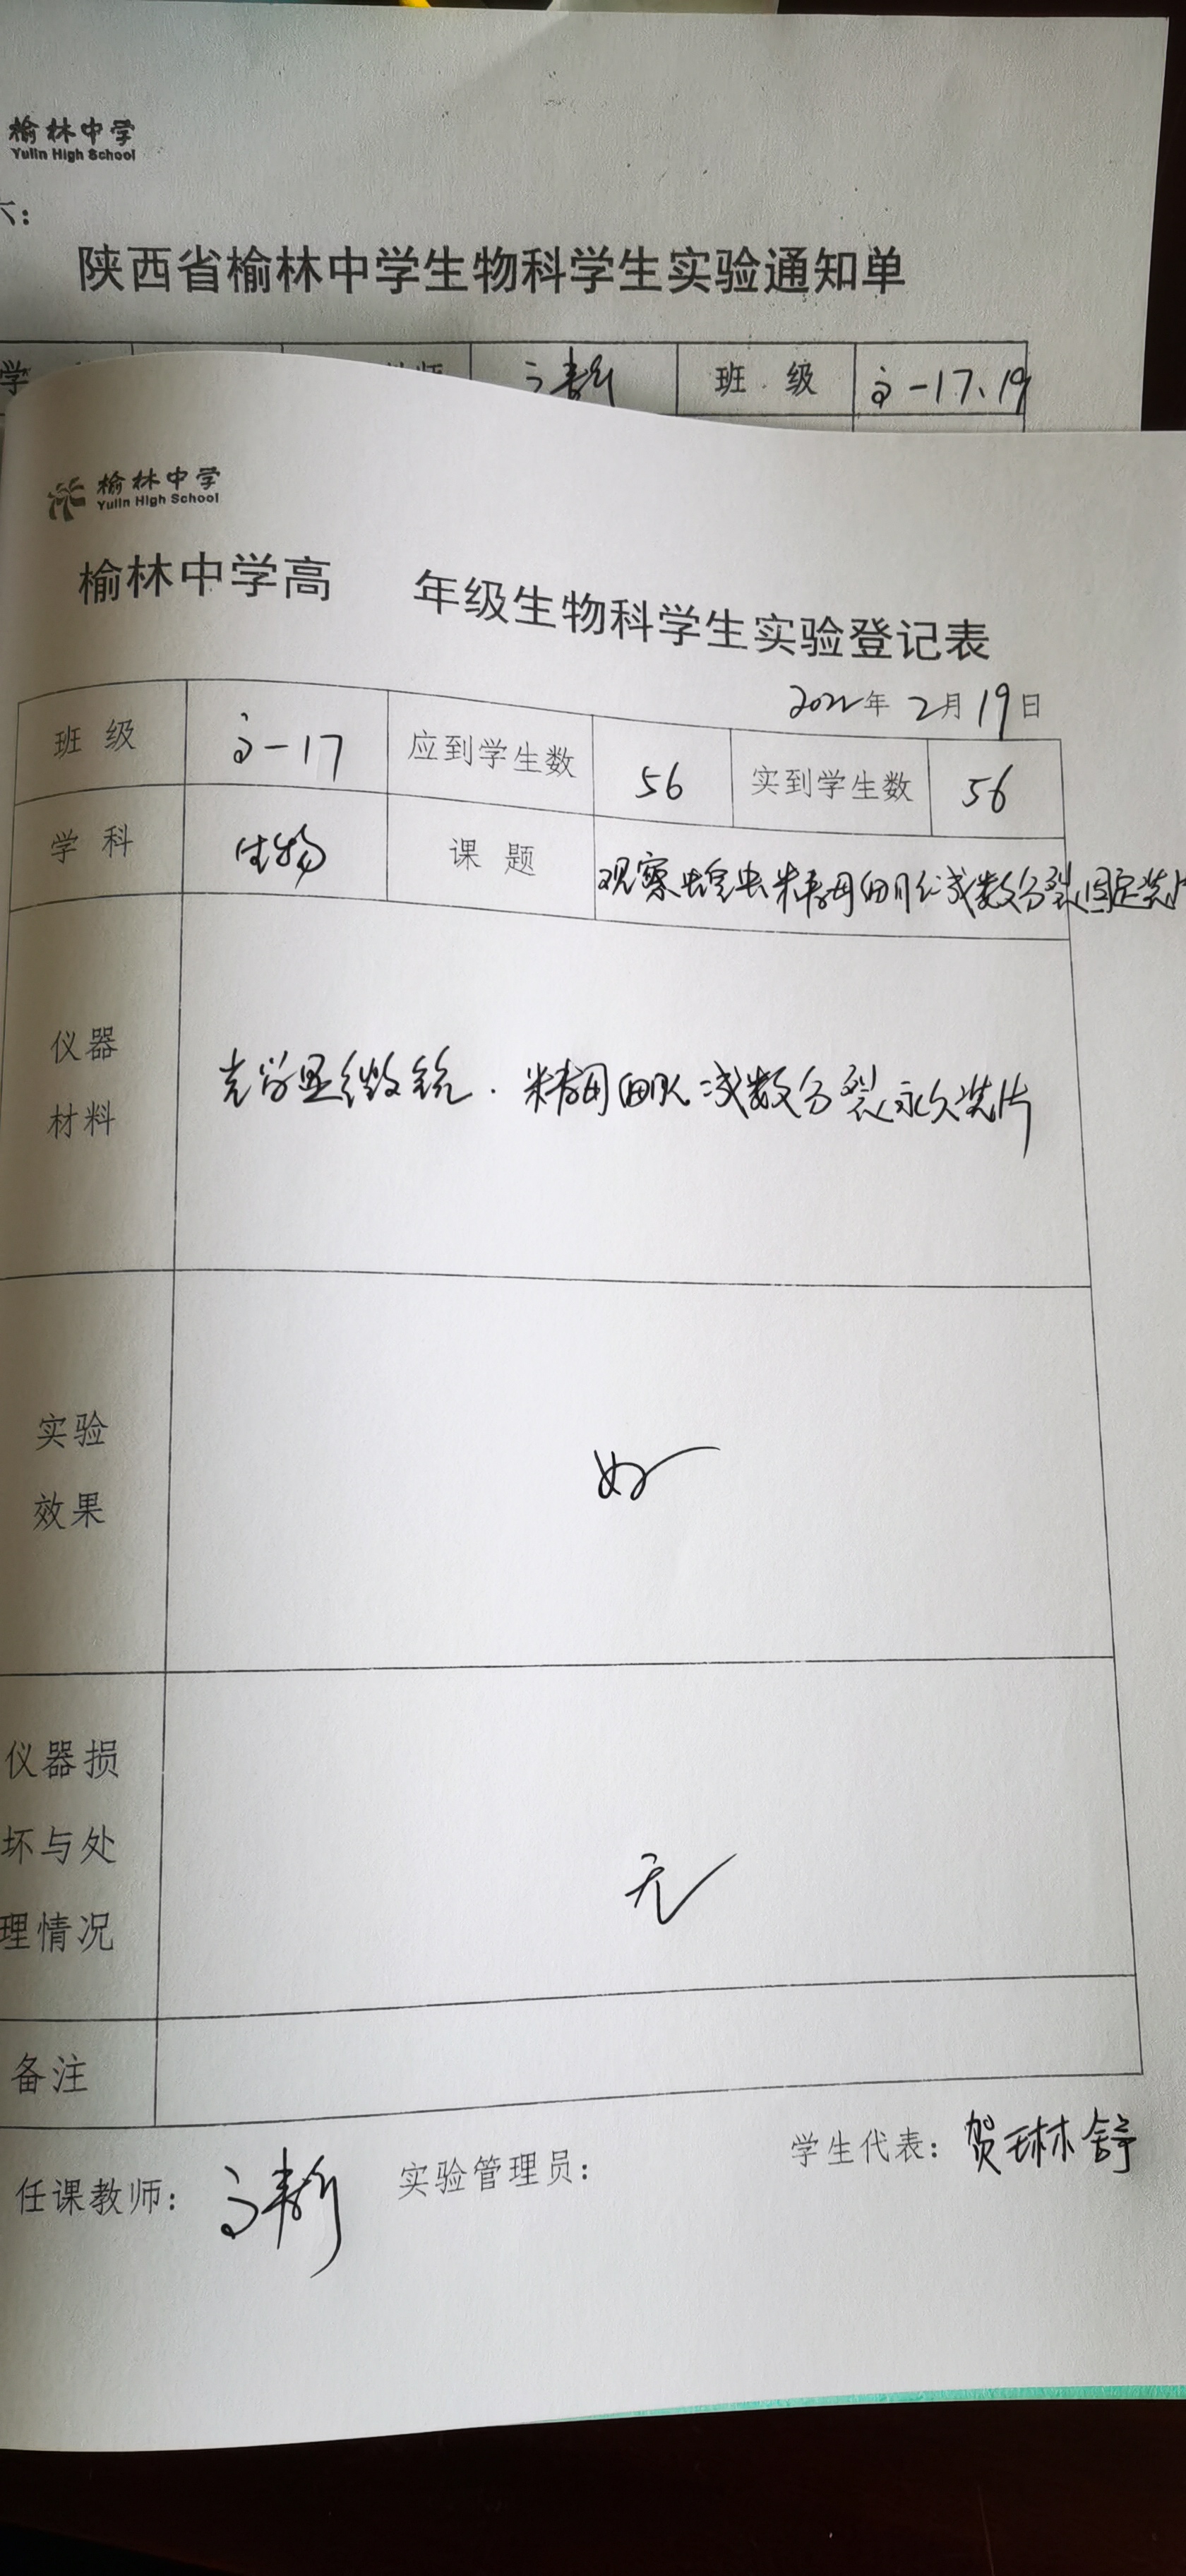 榆林中学
Yulin High School
六:
陕西省榆林中学生物科学生实验通知单
学 班 级 高一17、19
榆林中学
Yulin High School
榆林中学高 年级生物科学生实验登记表
2022年 2月19日
班 级 高一17 应到学生数 56 实到学生数 56
学 科 生物 课 题 观察蝗虫精母细胞减数分裂固定装片
仪器
材料
光学显微镜. 精母细胞减数分裂永久装片
实验
效果
好
仪器损
坏与处
理情况
无
备注
任课教师: 实验管理员: 学生代表: 贺琳舒